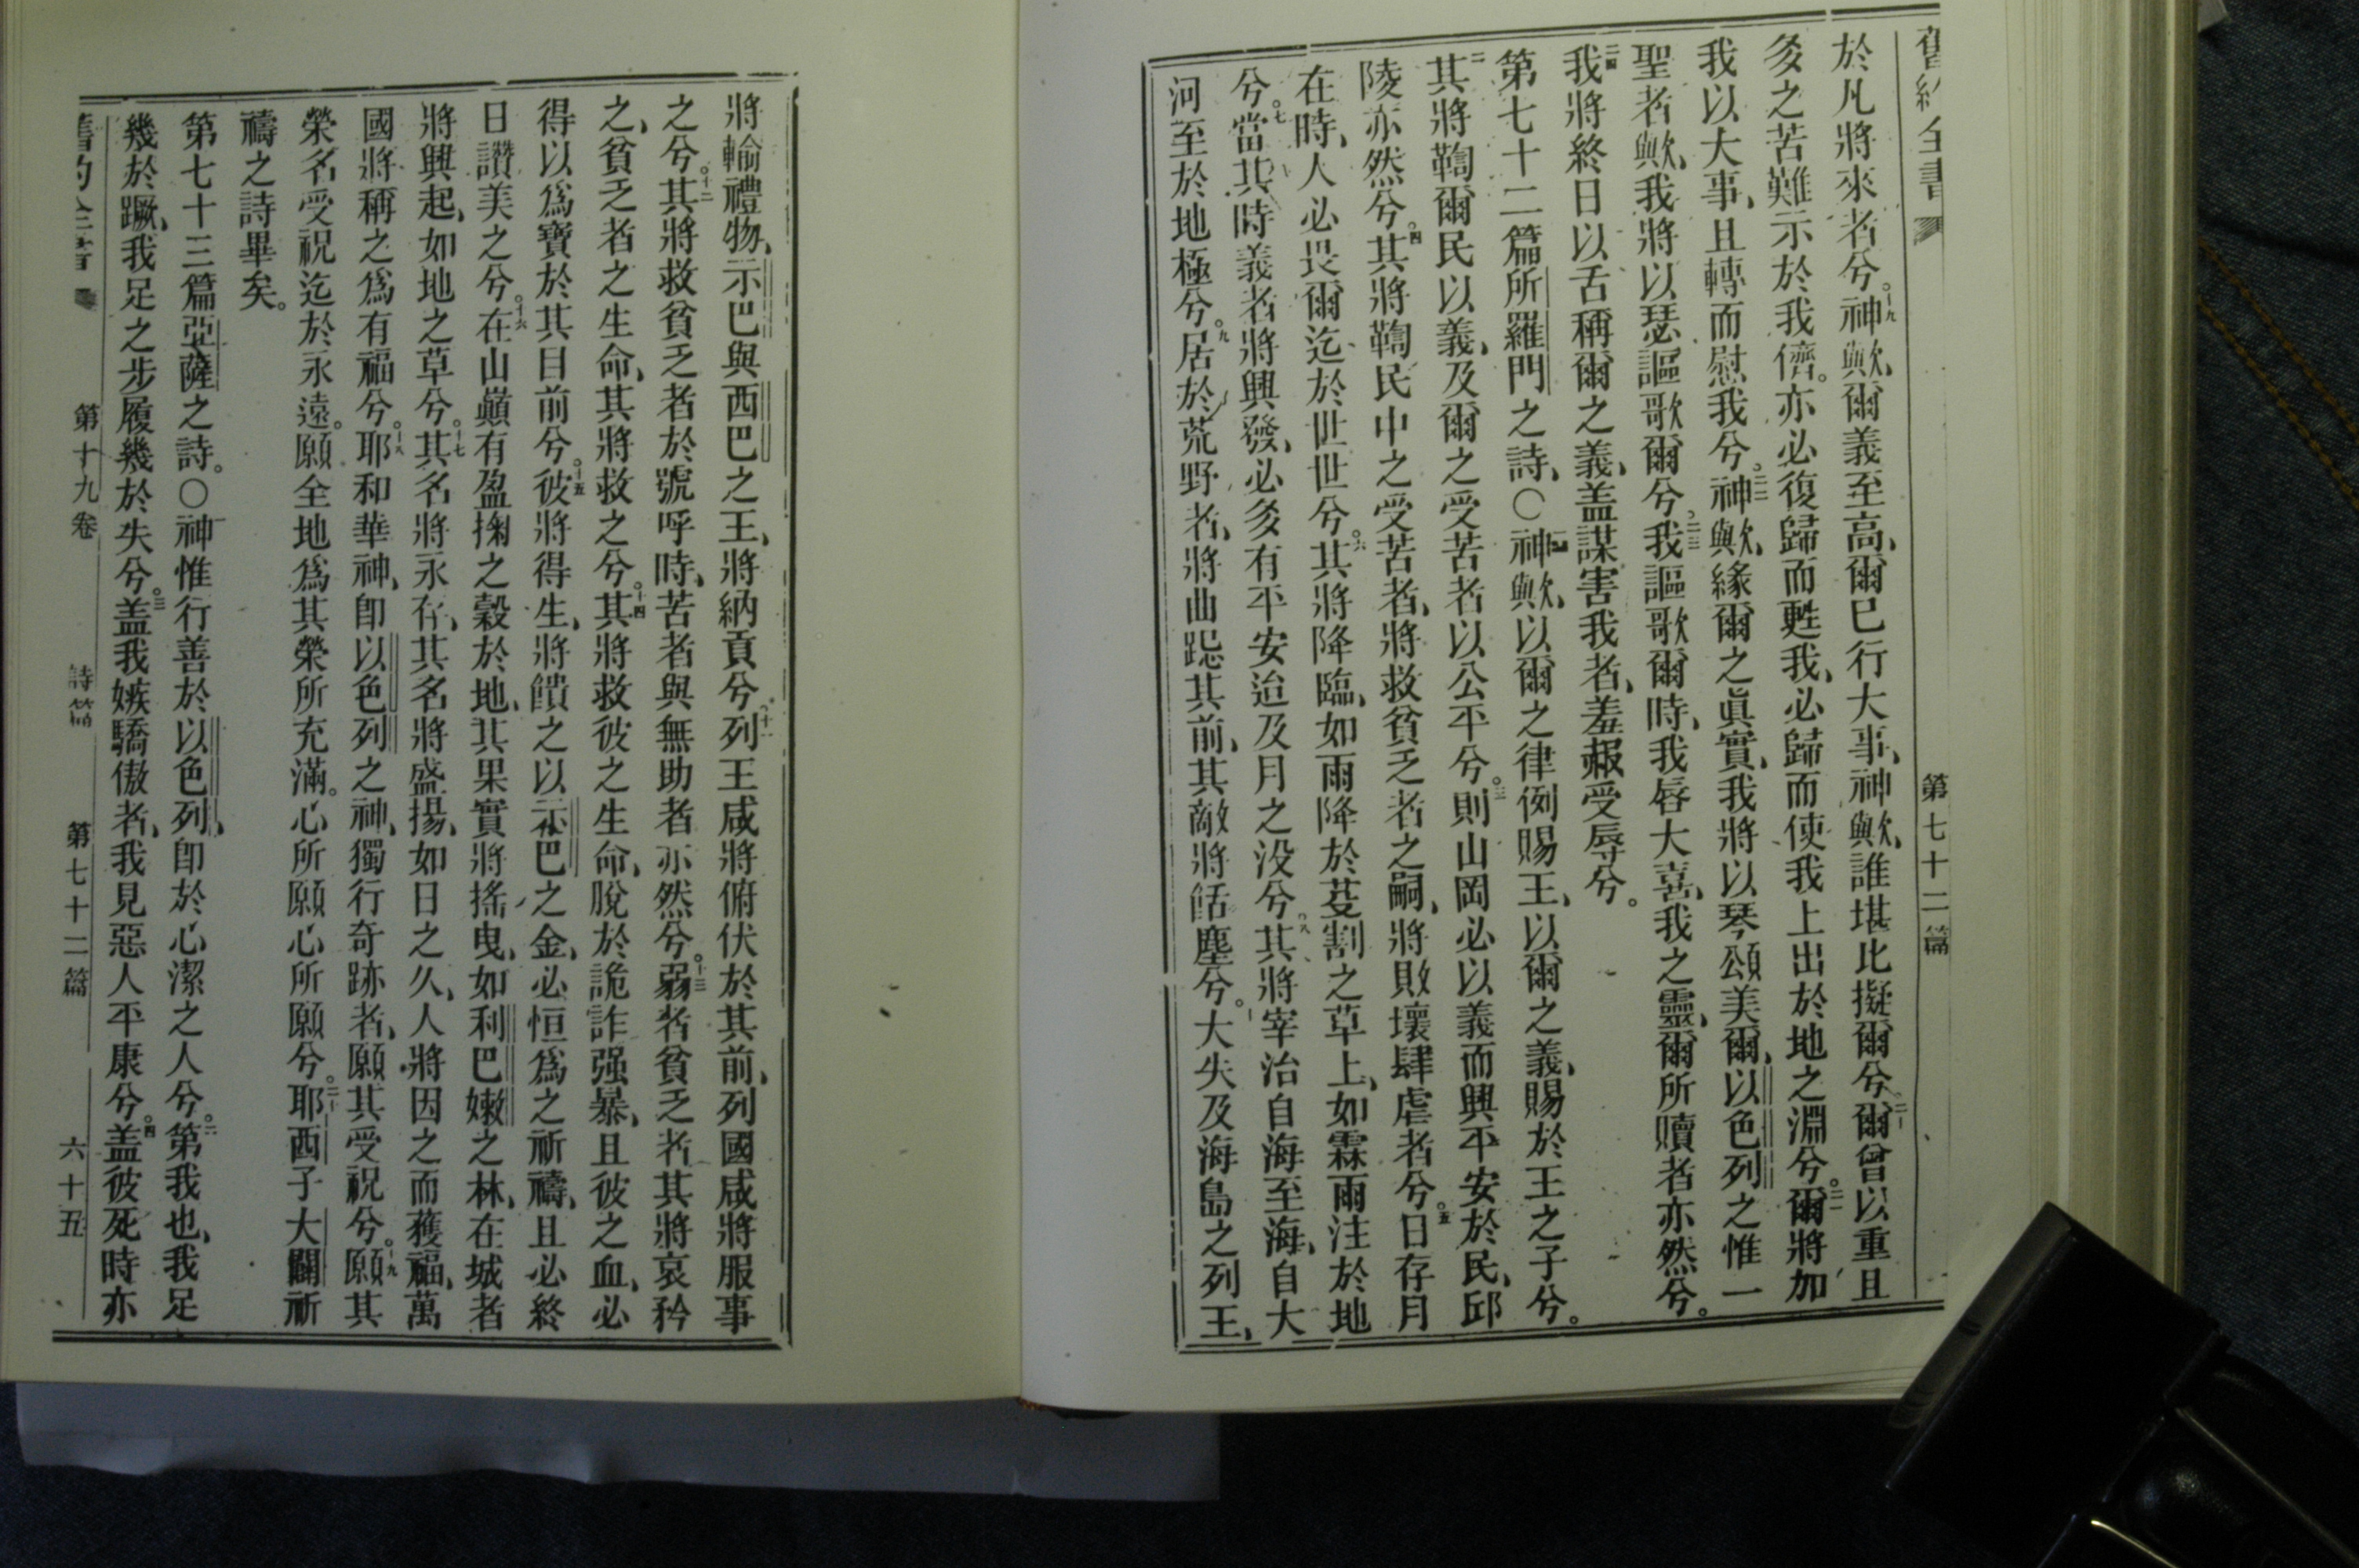 舊約全書 第七十二篇
於凡將來者兮。十九神歟、爾義至高、爾已行大事、神歟、誰堪比擬爾兮。二十爾曾以重且
多之苦難示於我儕。亦必復歸而甦我、必歸而使我上出於地之淵兮。二一爾將加
我以大事、且轉而慰我兮。二二神歟、緣爾之眞實、我將以琴頌美爾、以色列之惟一
聖者歟、我將以瑟謳歌爾兮。二三我謳歌爾時、我唇大喜、我之靈、爾所贖者亦然兮。
二四我將終日以舌稱爾之義、盖謀害我者、羞赧受辱兮。
第七十二篇所羅門之詩、○一神歟、以爾之律例賜王、以爾之義、賜於王之子兮。
二其將鞫爾民以義、及爾之受苦者以公平兮。三則山岡必以義而興平安於民、邱
陵亦然兮。四其將鞫民中之受苦者、將救貧乏者之嗣、將敗壞肆虐者兮。五日存月
在時、人必畏爾迄於世世兮。六其將降臨、如雨降於芟割之草上、如霖雨注於地
兮。七當其時義者將興發、必多有平安迨及月之没兮。八其將宰治自海至海、自大
河至於地極兮。九居於荒野者、將曲跽其前、其敵將餂塵兮。十大失及海島之列王、
將輸禮物、示巴與西巴之王、將納貢兮。十一列王咸將俯伏於其前、列國咸將服事
之兮。十二其將救貧乏者於號呼時、苦者與無助者亦然兮。十三弱者貧乏者其將哀矜
之、貧乏者之生命、其將救之兮。十四其將救彼之生命、脫於詭詐强暴、且彼之血、必
得以爲寶於其目前兮。十五彼將得生、將饋之以示巴之金、必恒爲之祈禱、且必終
日讚美之兮。十六在山巓有盈掬之穀於地、其果實將搖曳、如利巴嫩之林、在城者
將興起、如地之草兮。十七其名將永存、其名將盛揚、如日之久、人將因之而獲福、萬
國將稱之爲有福兮。十八耶和華神、卽以色列之神、獨行奇跡者、願其受祝兮。十九願其
榮名受祝迄於永遠。願全地爲其榮所充滿。心所願心所願兮。二十耶西子大闢祈
禱之詩畢矣。
第七十三篇亞薩之詩。○神惟行善於以色列、卽於心潔之人兮。二第我也、我足
幾於蹶、我足之步履幾於失兮。三盖我嫉驕傲者、我見惡人平康兮。四盖彼死時亦
舊約全書 第十九卷 詩篇 第七十二篇 六十五